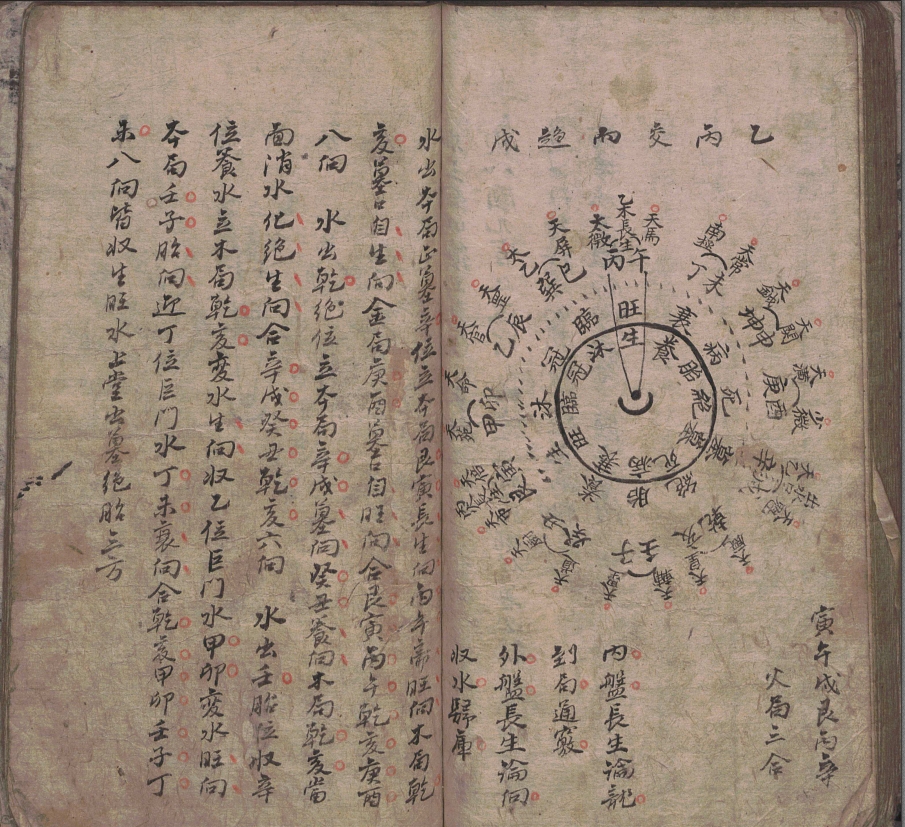 乙丙交而趨戌
寅午戌艮丙辛
火局三合
天馬
午
乙未長生
丙
太微
天屏
巳
巽
天乙
辰
乙
卯
甲
丁未
天常
坤申
天關
庚酉
天漢
壬子
天輔
天皇
旺
衰
病
死
胎
沐
冠
臨
生
養
胎
絕
死
病
衰
旺
臨
冠
沐
內盤長生論龍
到局通竅
外盤長生論向
収水歸庫
水出夲局正墓辛位立夲局艮寅長生向丙午帝旺向木局乾
亥墓古自生向金局庚酉墓古自旺向合艮寅丙午乾亥庚酉
八向 水出乾絕位立夲局辛戌墓向癸丑養向木局乾亥當
面消水化絕生向合辛戌癸丑乾亥六向 水出壬胎位収辛
位養水立木局乾亥变水生向収乙位巨門水甲卯变水旺向
夲局壬子胎向迎丁位巨門水丁未衰向合乾亥甲卯壬子丁
未八向皆収生旺水上堂出墓絕胎三方